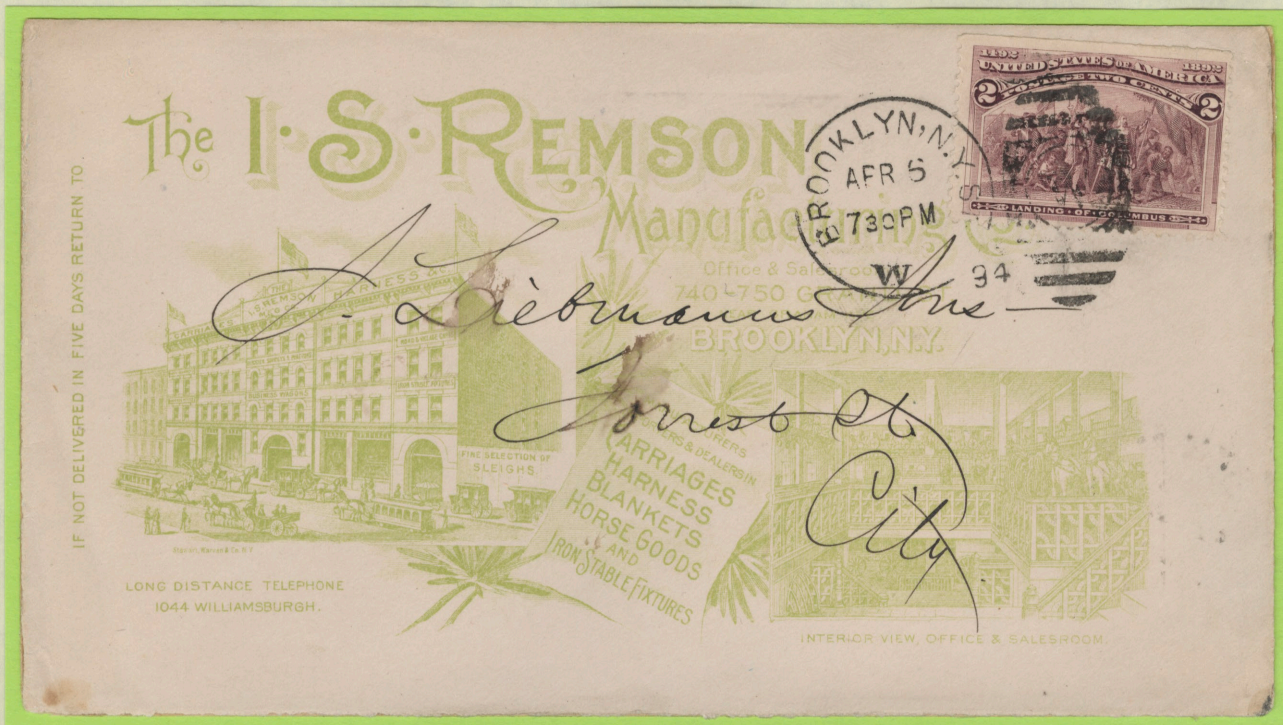 IF NOT DELIVERED IN FIVE DAYS RETURN TO
The I·S·REMSON
Manufacturing Co.
Office & Salesroom
740-750 GRAND
BROOKLYN, N.Y.
1492 1892
UNITED STATES OF AMERICA
POSTAGE TWO CENTS
2 2
LANDING · OF · COLUMBUS
BROOKLYN, N.Y.
APR 6
730PM
W
94
S. Liebmanns Sons
Forrest St.
City
I.S. REMSON HARNESS & CO.
CARRIAGES
FINE SELECTION OF
SLEIGHS
& DEALERS IN
CARRIAGES
HARNESS
BLANKETS
HORSE GOODS
AND
IRON STABLE FIXTURES
LONG DISTANCE TELEPHONE
1044 WILLIAMSBURGH.
INTERIOR VIEW, OFFICE & SALESROOM.